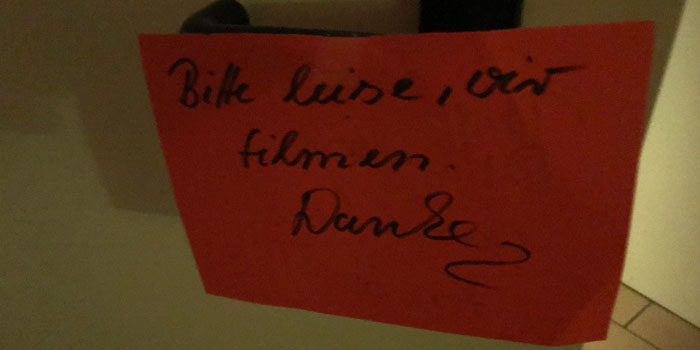 Bitte leise, wir
filmen.
Danke